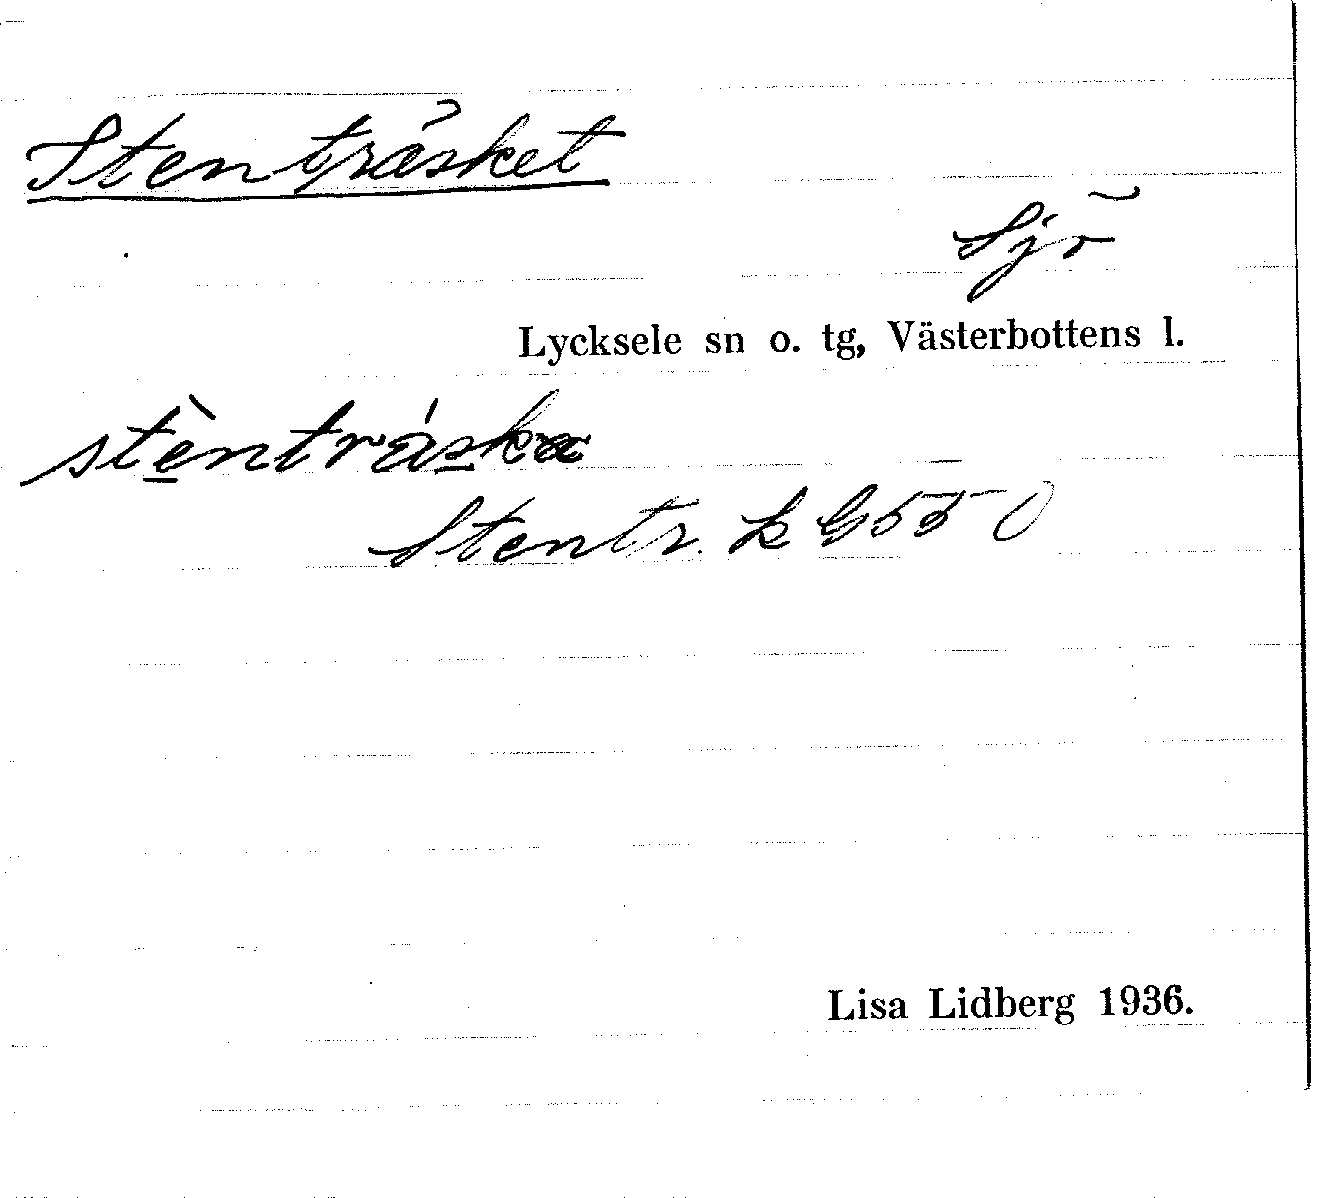 Stenträsket
Sjö
Lycksele sn o. tg, Västerbottens l.
stèntráska
Stentr. k G55 O
Lisa Lidberg 1936.